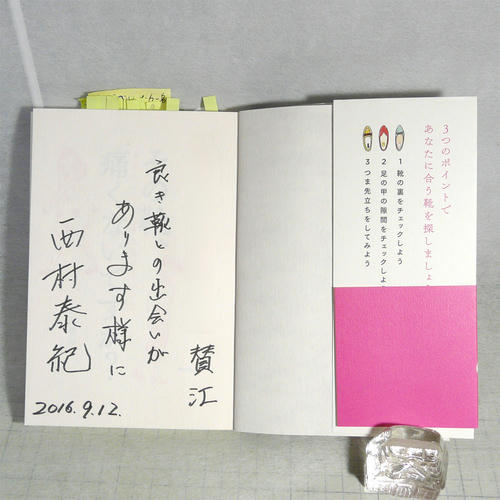 賛江
良き靴との出会いが
ありますう様に
西村泰紀
2016.9.12.
3つのポイントで
あなたに合う靴を探しましょ
1 靴の裏をチェックしよう
2 足の甲の隙間をチェックしよ
3 つま先立ちをしてみよう